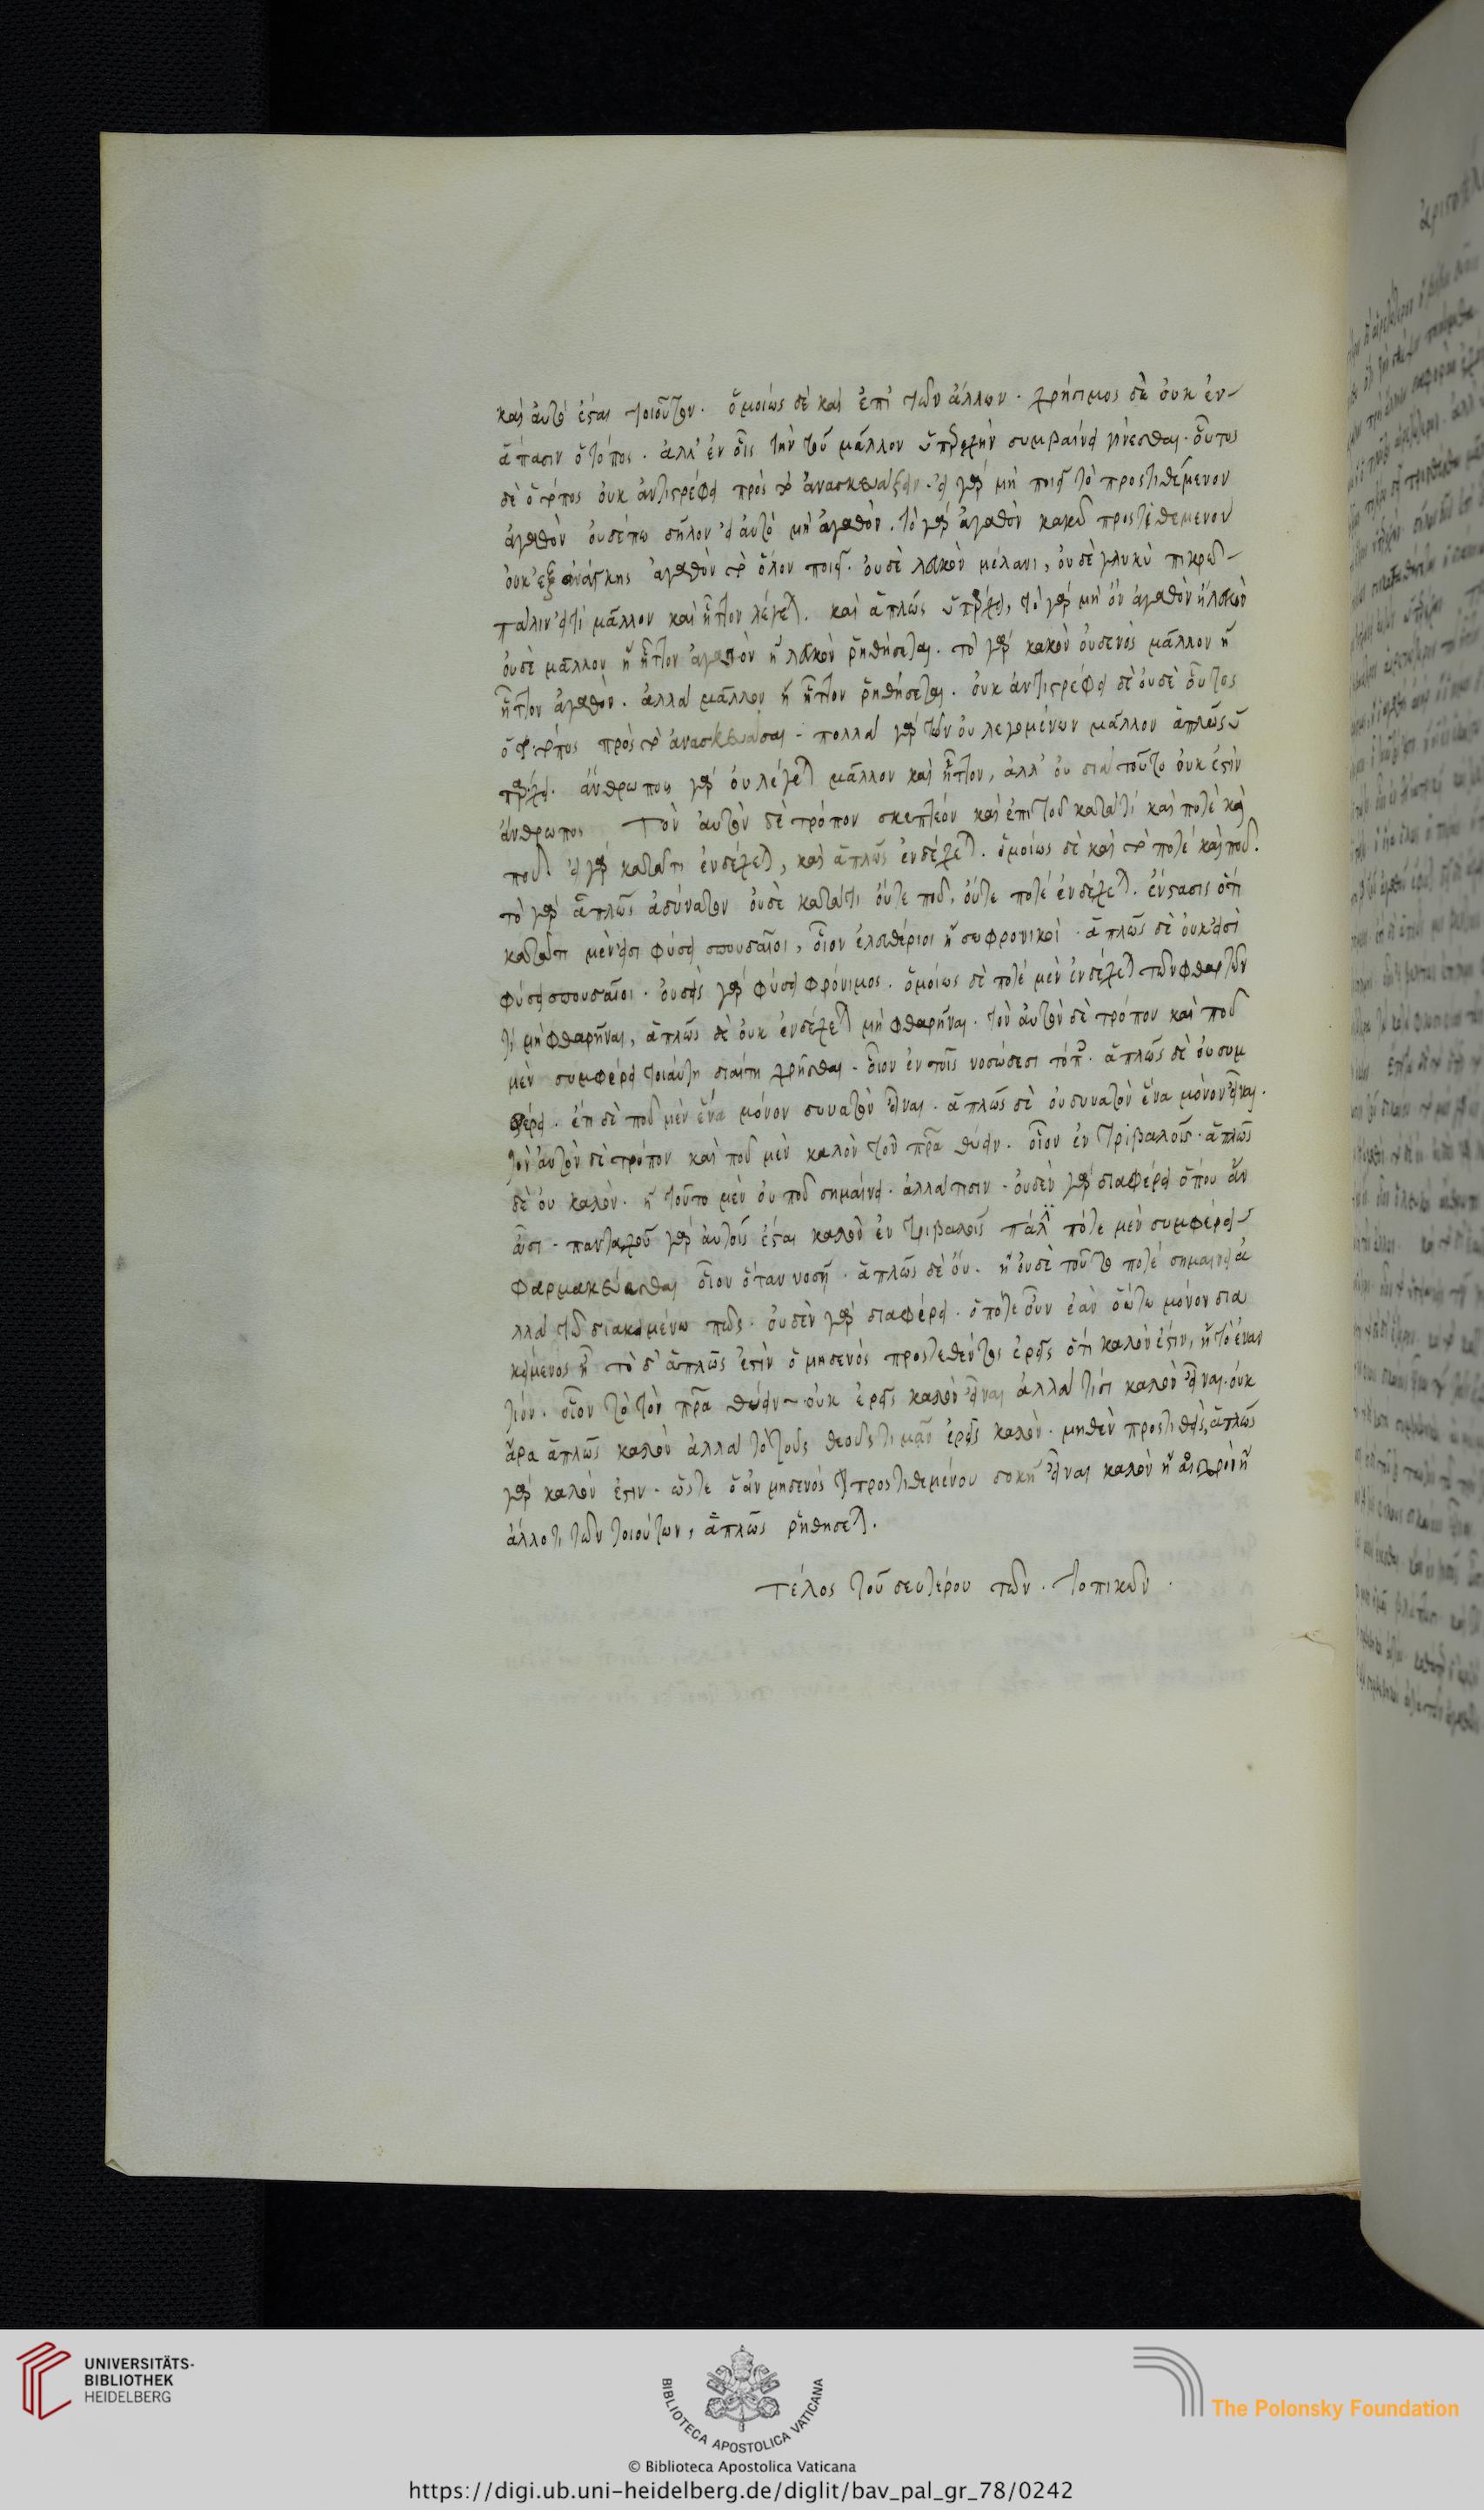 καὶ αὐτὸ ἔσται τοιοῦτον. ὁμοίως δὲ καὶ ἐπὶ τῶν ἄλλων. χρήσιμος δὲ οὐκ ἐν
ἅπασιν ὁ τόπος. ἀλλ' ἐν οἷς τὴν τοῦ μᾶλλον ὑπεροχὴν συμβαίνει γίνεσθαι. οὗτος
δὲ ὁ τρόπος οὐκ ἀντιστρέφει πρὸς τὸ ἀνασκευάζειν. εἰ γὰρ μὴ ποιεῖ τὸ προστιθέμενον
ἀγαθὸν οὐδέπω δῆλον εἰ αὐτὸ μὴ ἀγαθόν. τὸ γὰρ ἀγαθὸν κακῶ προστιθέμενον
οὐκ ἐξ ἀνάγκης ἀγαθὸν τὸ ὅλον ποιεῖ. οὐδὲ λευκὸν μέλανι, οὐδὲ γλυκὺ πικρῶ
πάλιν εἴ τι μᾶλλον καὶ ἧττον λέγεται. καὶ ἁπλῶς ὑπάρχει, τὸ γὰρ μὴ ὂν ἀγαθὸν ἢ λευκὸν
οὐδὲ μᾶλλον ἢ ἧττον ἀγαθὸν ἢ λευκὸν ῥηθήσεται. τὸ γὰρ κακὸν οὐδενὸς μᾶλλον ἢ
ἧττον ἀγαθὸν. ἀλλὰ μᾶλλον ἢ ἧττον ῥηθήσεται. οὐκ ἀντιστρέφει δὲ οὐδὲ οὗτος
ὁ τρόπος πρὸς τὸ ἀνασκευάσαι. πολλὰ γὰρ τῶν οὐ λεγομένων μᾶλλον ἁπλῶς ὑ
πάρχει. ἄνθρωπος γὰρ οὐ λέγεται μᾶλλον καὶ ἧττον, ἀλλ' οὐ διὰ τοῦτο οὐκ ἔστιν
ἄνθρωπος Τὸν αὐτὸν δὲ τρόπον σκεπτέον καὶ ἐπὶ τοῦ κατά τι καὶ ποτὲ καὶ
ποῦ εἰ γὰρ κατά τι ἐνδέχεται, καὶ ἁπλῶς ἐνδέχεται. ὁμοίως δὲ καὶ τὸ ποτὲ καὶ ποῦ.
τὸ γὰρ ἁπλῶς ἀδύνατον οὐδὲ κατά τι οὔτε ποῦ, οὔτε ποτὲ ἐνδέχεται. ἔνστασις ὅτι
κατά τι μέν εἰσι φύσει σπουδαῖοι, οἷον ἐλευθέριοι ἢ σωφρονικοὶ. ἁπλῶς δὲ οὐκ εἰσὶ
φύσει σπουδαῖοι. οὐδεὶς γὰρ φύσει φρόνιμος. ὁμοίως δὲ ποτὲ μὲν ἐνδέχεται τῶν φθαρτῶν
τι μὴ φθαρῆναι, ἁπλῶς δὲ οὐκ ἐνδέχεται μὴ φθαρῆναι. τὸν αὐτὸν δὲ τρόπον καὶ ποῦ
μὲν συμφέρει τοιαύτη διαίτη χρῆσθαι. οἷον ἐν τοῖς νοσώδεσι τόποις. ἁπλῶς δὲ οὐ συμ
φέρει. ἔτι δὲ ποῦ μὲν ἕνα μόνον δυνατὸν εἶναι. ἁπλῶς δὲ οὐ δυνατὸν ἕνα μόνον εἶναι.
τὸν αὐτὸν δὲ τρόπον καὶ ποῦ μὲν καλὸν τὸν πρα θύειν. οἷον ἐν Τριβαλοῖς. ἁπλῶς
δὲ οὐ καλὸν. ἢ τοῦτο μὲν οὐ ποῦ σημαίνει. ἀλλὰ τισιν. οὐδὲν γὰρ διαφέρει ὅπου ἂν
ὦσι. πανταχοῦ γὰρ αὐτοῖς ἔσται καλὸν ἐν Τριβαλοῖς πάλιν πότε μὲν συμφέρει
φαρμακεύεσθαι οἷον ὅταν νοσῆ. ἁπλῶς δὲ οὔ. ἢ οὐδὲ τοῦτο ποτὲ σημαίνει ἀ
λλὰ τῶ διακειμένω πως. οὐδὲν γὰρ διαφέρει. ὁπότε οὖν ἐὰν οὕτω μόνον δια
κείμενος ἦ τὸ δ' ἁπλῶς ἐστὶν ὃ μηδενὸς προστεθέντος ἐρεῖς ὅτι καλόν ἐστιν, ἢ τὸ ἐναν
τίον. οἷον τὸ τὸν πρα θύειν οὐκ ἐρεῖς καλὸν εἶναι ἀλλὰ τισὶ καλὸν εἶναι. οὐκ
ἄρα ἁπλῶς καλὸν ἀλλὰ τὸ τοὺς θεοὺς τιμᾶν ἐρεῖς καλὸν. μηδὲν προστιθείς, ἁπλῶς
γὰρ καλόν ἐστιν. ὥστε ὃ ἂν μηδενὸς προστιθεμένου δοκῆ εἶναι καλὸν ἢ αἰσχρὸν ἢ
ἄλλο τι τῶν τοιούτων, ἁπλῶς ῥηθήσεται.
Τέλος τοῦ δευτέρου τῶν. τοπικῶν.
UNIVERSITÄTS-
BIBLIOTHEK
HEIDELBERG
BIBLIOTECA APOSTOLICA VATICANA
The Polonsky Foundation
© Biblioteca Apostolica Vaticana
https://digi.ub.uni-heidelberg.de/diglit/bav_pal_gr_78/0242